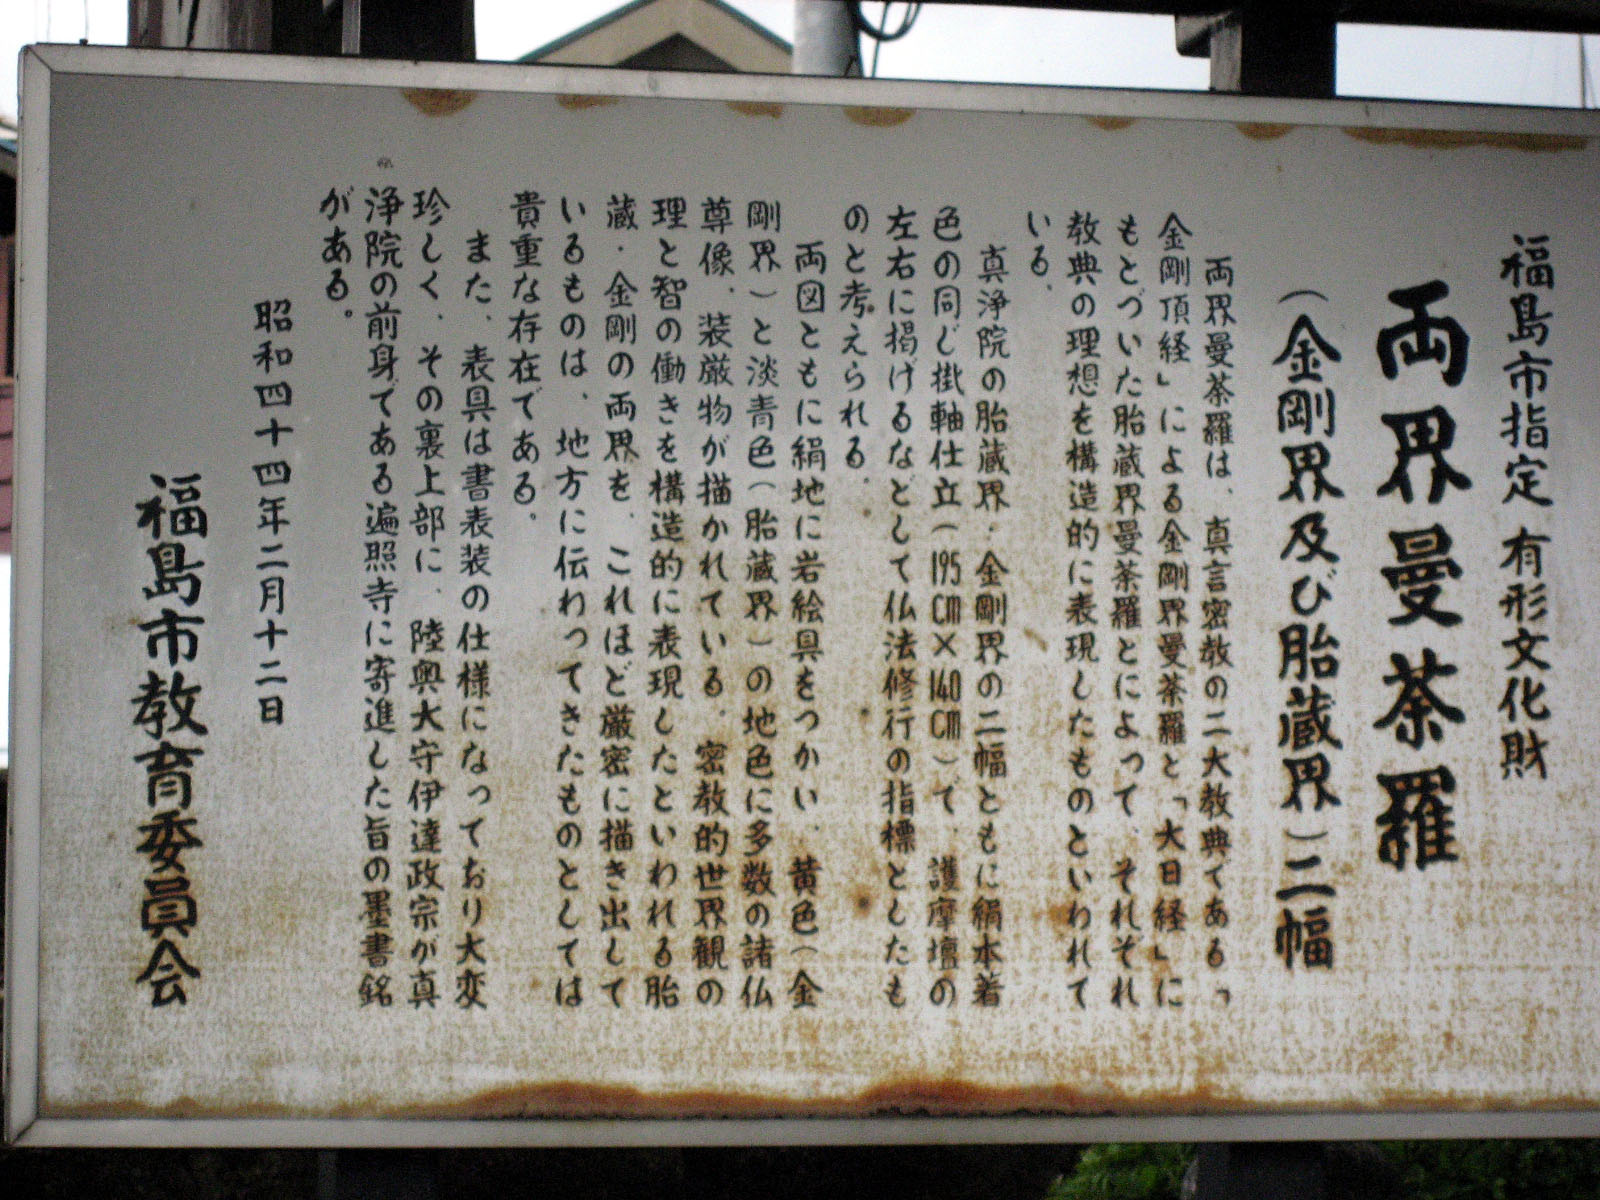 福島市指定 有形文化財
両界曼荼羅
（金剛界及び胎蔵界）二幅
両界曼荼羅は、真言密教の二大教典である「
金剛頂経」による金剛界曼荼羅と「大日経」に
もとづいた胎蔵界曼荼羅とによって、それぞれ
教典の理想を構造的に表現したものといわれて
いる。
真浄院の胎蔵界・金剛界の二幅ともに絹本着
色の同じ掛軸仕立（195cm×140cm）で、護摩壇の
左右に掲げるなどして仏法修行の指標としたも
のと考えられる。
両図ともに絹地に岩絵具をつかい、黄色（金
剛界）と淡青色（胎蔵界）の地色に多数の諸仏
尊像、装厳物が描かれている。密教的世界観の
理と智の働きを構造的に表現したといわれる胎
蔵・金剛の両界を、これほど厳密に描き出して
いるものは、地方に伝わってきたものとしては
貴重な存在である。
また、表具は書表装の仕様になっており大変
珍しく、その裏上部に、陸奥大守伊達政宗が真
浄院の前身である遍照寺に寄進した旨の墨書銘
がある。
昭和四十四年二月十二日
福島市教育委員会